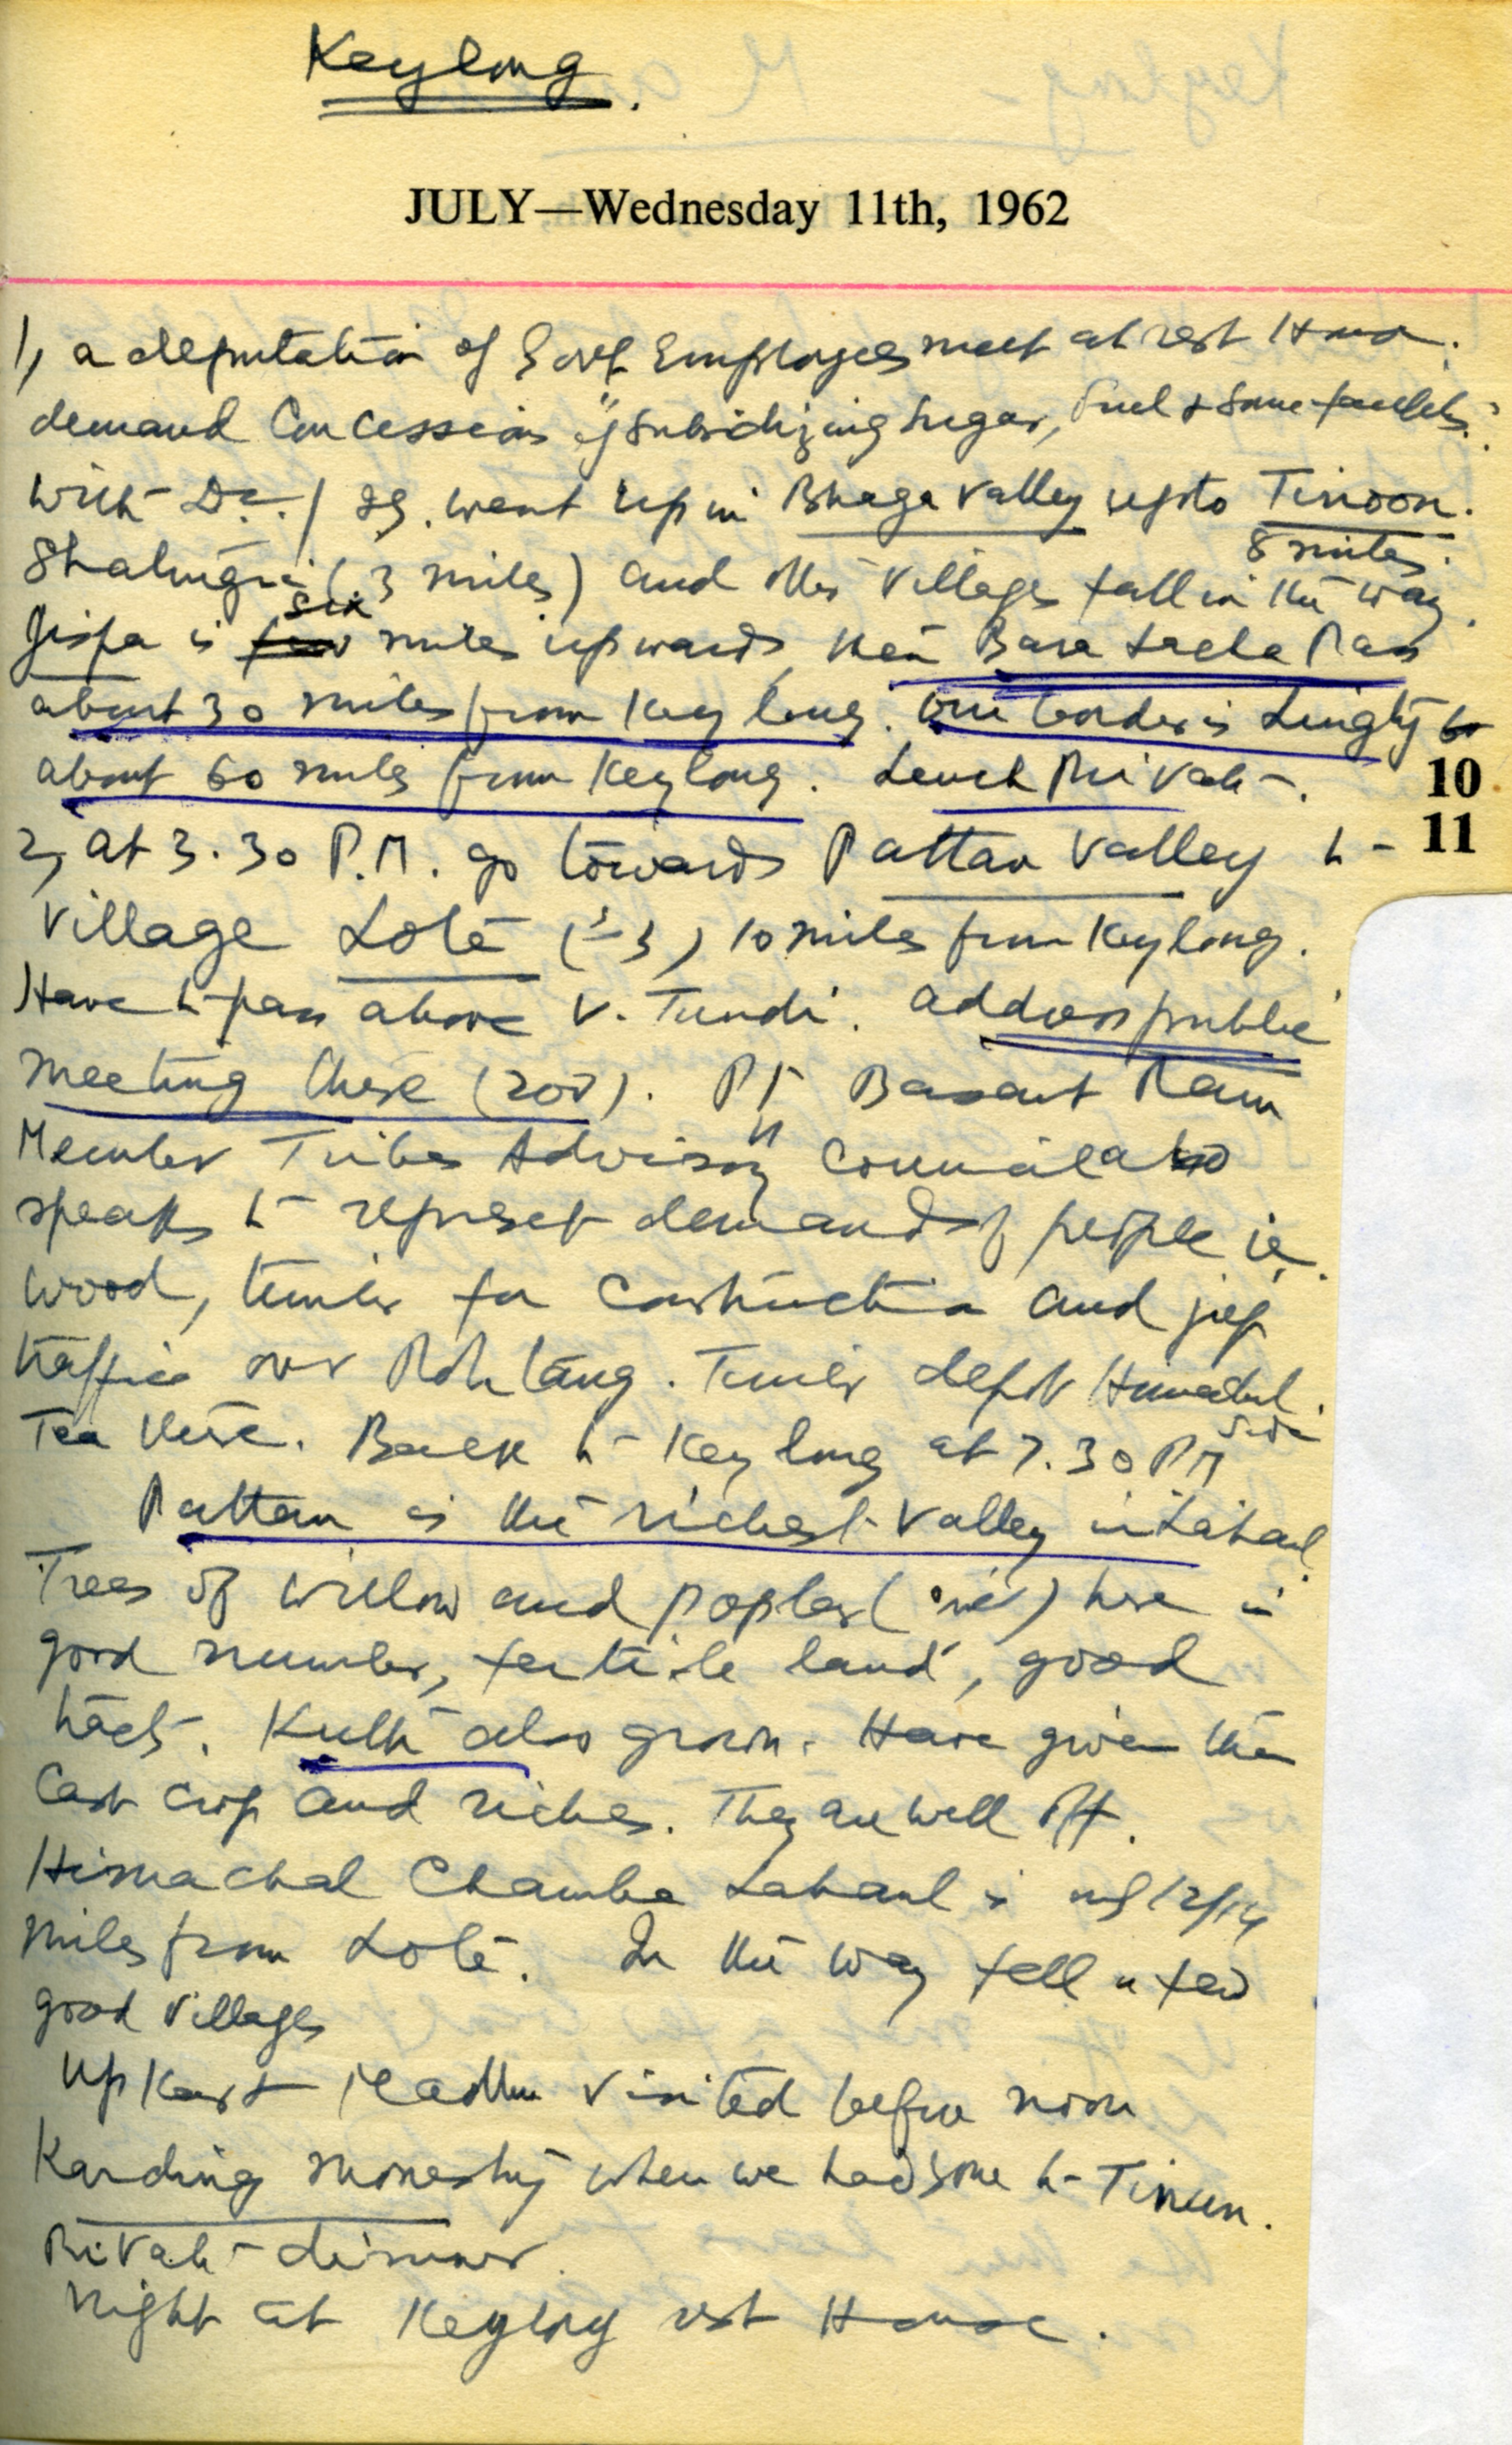 Keylong.
JULY—Wednesday 11th, 1962
1, a deputation of Govt Employees meet at rest House.
demand Concessions of subsidizing sugar, fuel & some
with D.C. / went up in Bhaga Valley upto Tinoon.
8 miles.
(3 miles) and other villages fall in the way.
six
Jispa is few miles upwards, then Bara Lacha Pass
about 30 miles from Keylong. Our border is Lingty
about 60 miles from Keylong. Lunch Private.
10
11
2, at 3.30 P.M. go towards Pattan Valley to
Village Lote 10 miles from Keylong.
Have to pass above V. Tundi. address public
meeting there (200). Pt Basant Ram
Member Tribes Advisory Council also
speaks to represet demands of people ie.
wood, timber for construction and jeep
traffic over Rohtang. Timber depot Himachal
side
Tea there. Back to Keylong at 7.30 PM
Pattan is the richest Valley in Lahaul.
Trees of willow and poplar ( ) here in
good number, fertile land, good
. Kuth also grown. Have given them
Cash crop and riches. They are well off.
Himachal Chamba Lahaul is only 12/14
miles from Lote. In the way fell a few
good villages
Upkar & Madhu visited before noon
Karding monestry when we had gone to Tinun.
Private dinner.
Night at Keylong rest House.